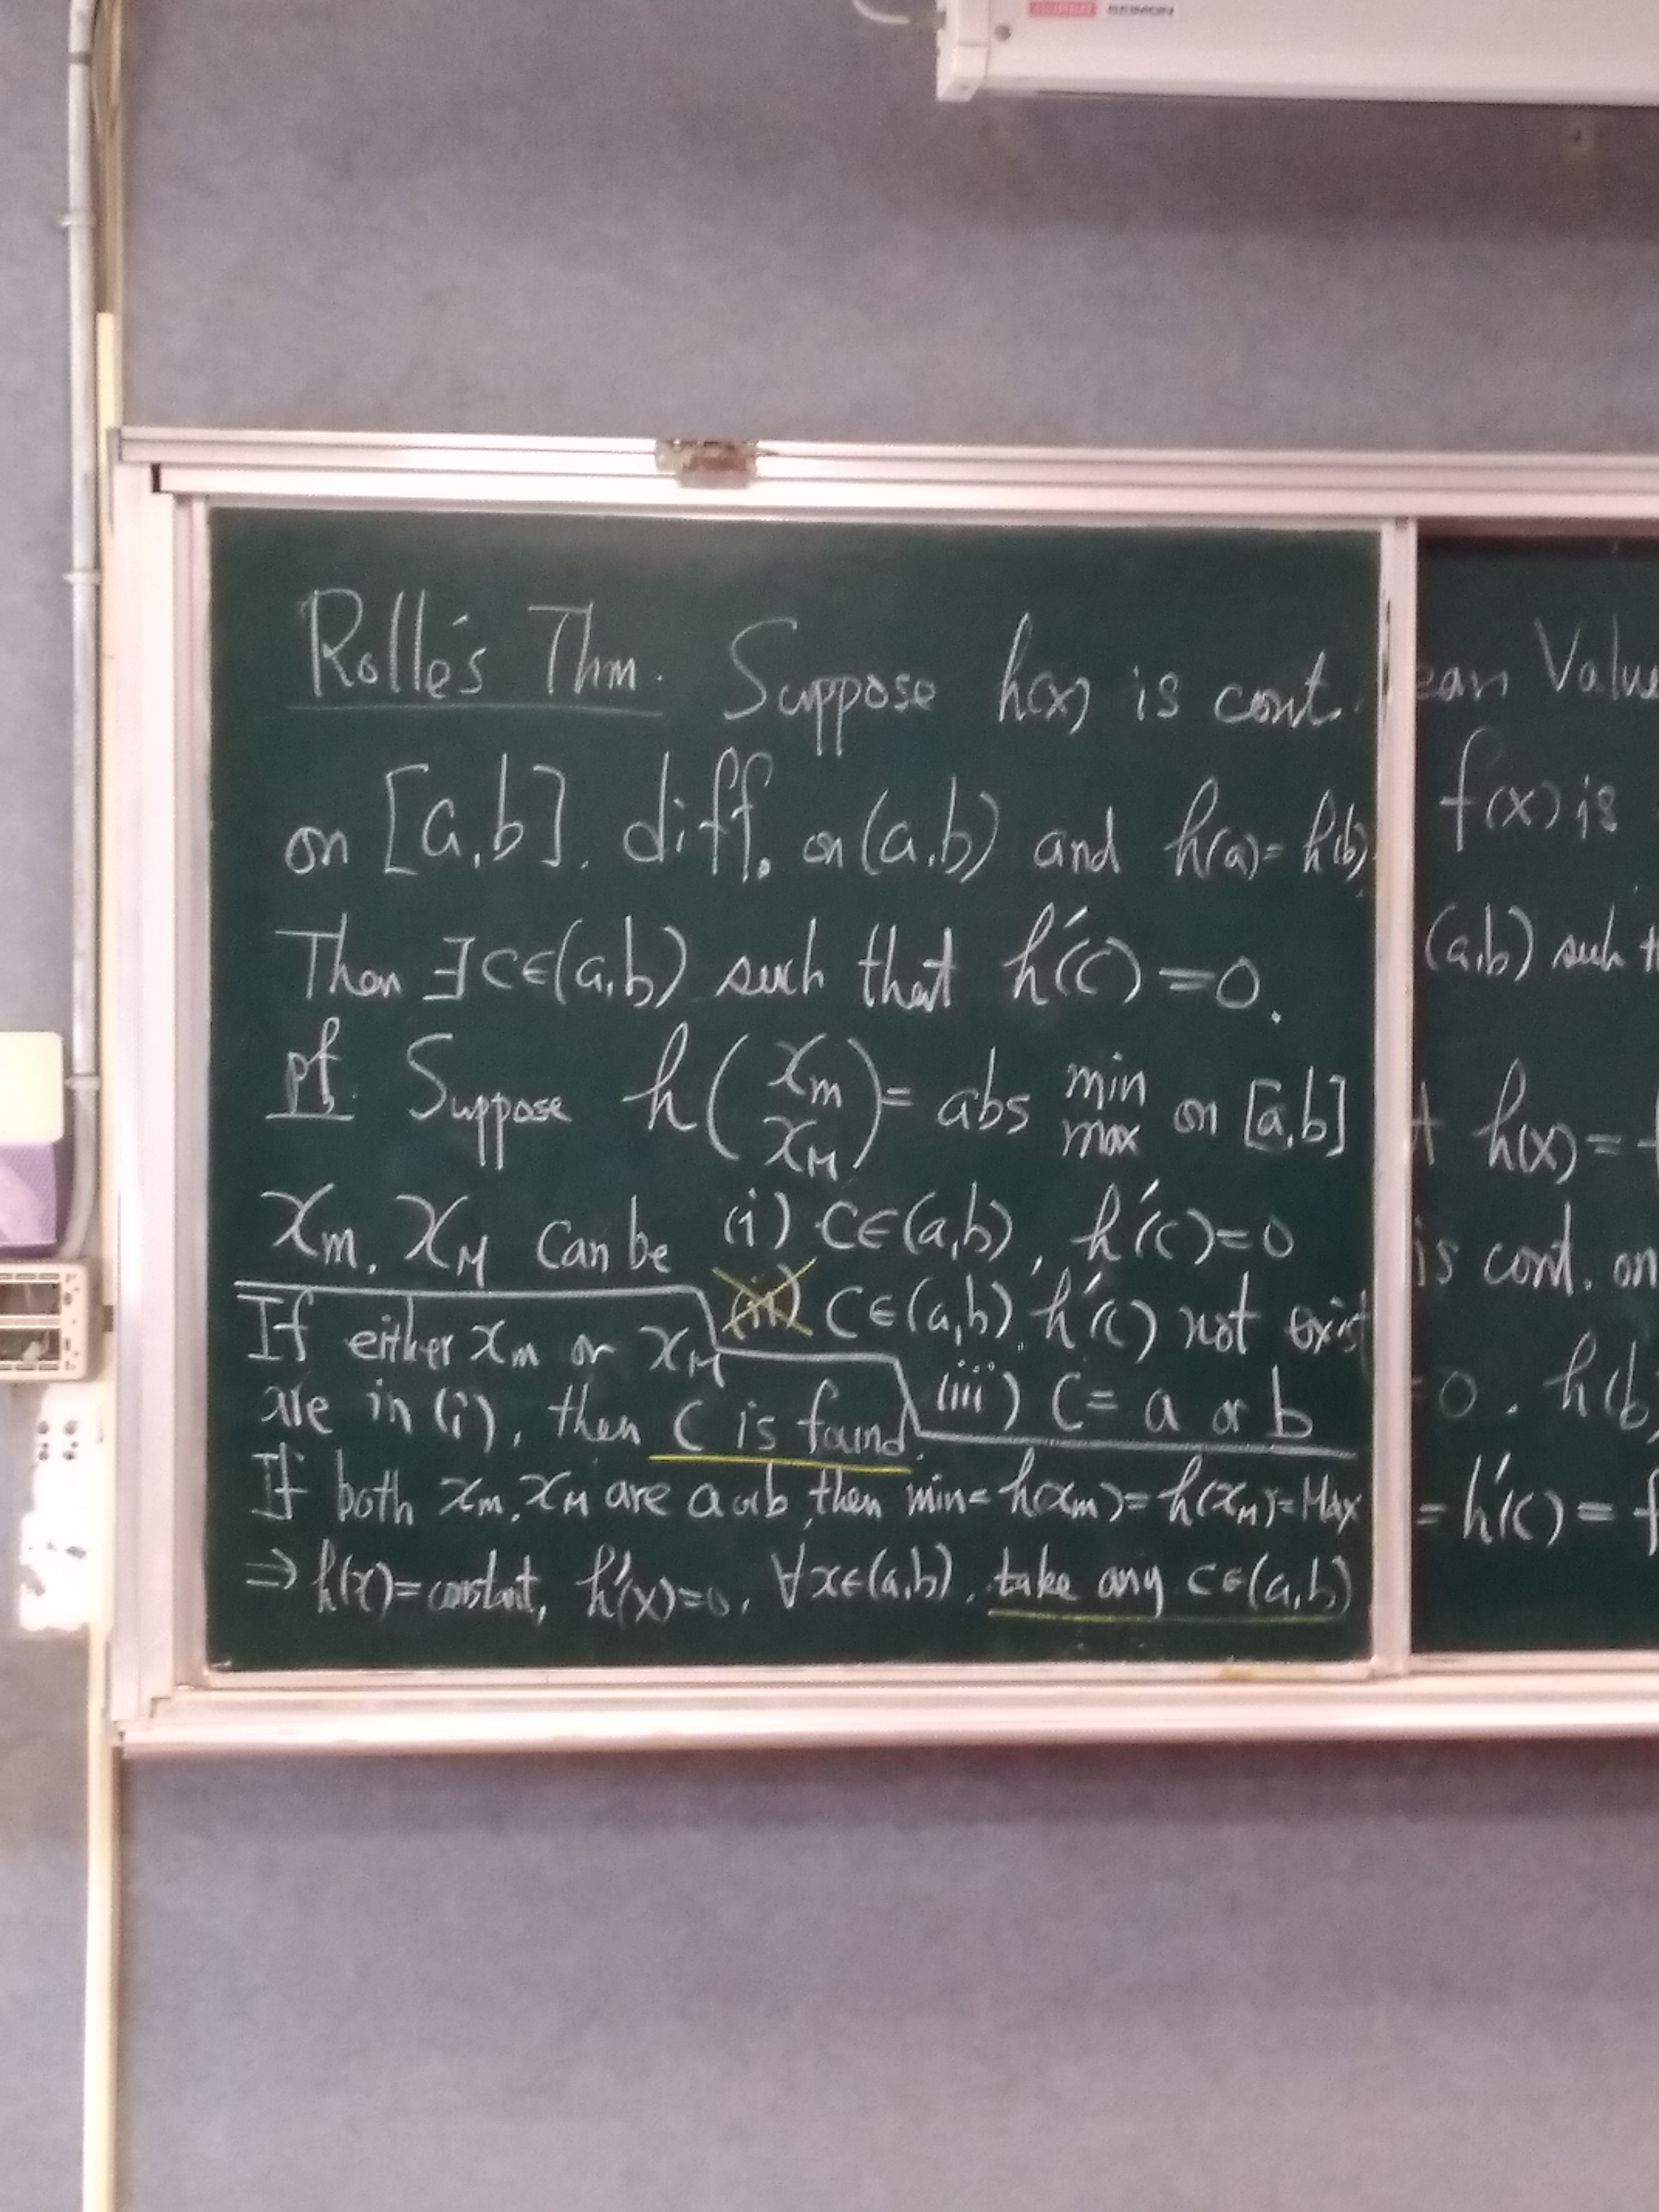 SUPER SEIMON
Rolle's Thm. Suppose h(x) is cont.
on [a,b], diff. on (a,b) and h(a)=h(b).
Then ∃c∈(a,b) such that h'(c)=0.
pf. Suppose h(x_m x_M)= abs min max on [a,b]
x_m, x_M can be (i) c∈(a,b), h'(c)=0
(ii) c∈(a,b), h'(c) not exist
(iii) c= a or b
If either x_m or x_M
are in (i), then c is found.
If both x_m, x_M are a or b, then min=h(x_m)=h(x_M)=Max
⇒ h(x)=constant, h'(x)=0, ∀x∈(a,b), take any c∈(a,b)
ean Value
f(x) is
(a,b) such
h(x) =
is cont. on
=0, h(b)
= h'(c) = f